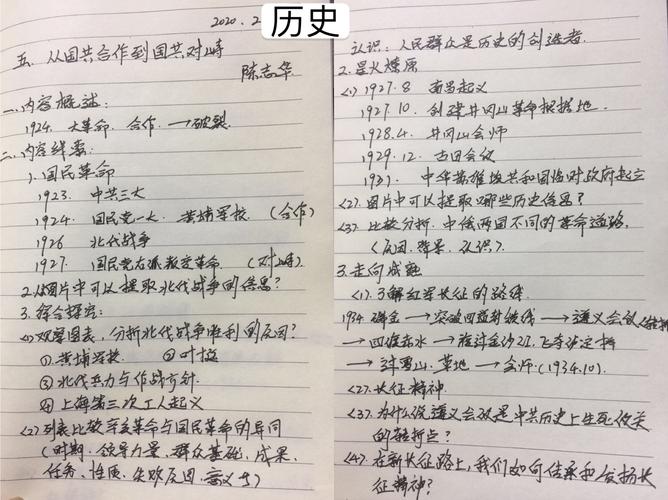 历史
2020.2
五.从国共合作到国共对峙
陈志华
一.内容概述:
1924. 大革命. 合作. →破裂.
二.内容线索:
1.国民革命
1923. 中共三大
1924. 国民党一大. 黄埔军校. (合作)
1926 北伐战争
1927. 国民党右派叛变革命 (对峙)
2.从图片中可以提取北伐战争的信息?
3.综合探究:
<1>观察图表,分析北伐战争胜利的原因?
①黄埔军校. ②叶挺
③北伐兵力与作战方针.
④上海第三次工人起义
<2>列表比较辛亥革命与国民革命的异同
(时期.领导力量.群众基础.成果.
任务.性质.失败原因.意义等)
认识:人民群众是历史的创造者.
2.星火燎原
<1>1927.8 南昌起义
1927.10. 创建井冈山革命根据地.
1928.4. 井冈山会师
1929.12. 古田会议
1931. 中华苏维埃共和国临时政府成立
<2>.图片中可以提取哪些历史信息?
<3>.比较分析.中俄两国不同的革命道路.
(原因.结果.认识).
3.走向成熟
<1>.了解红军长征的路线.
1934.瑞金→突破四道封锁线→遵义会议
→四渡赤水→强渡金沙江.飞夺泸定桥
→过雪山.草地→会师.(1934.10).
<2>.长征精神
<3>.为什么说遵义会议是中共历史上生死攸关
的转折点?
<4>.在新长征路上,我们如何传承和发扬长
征精神?